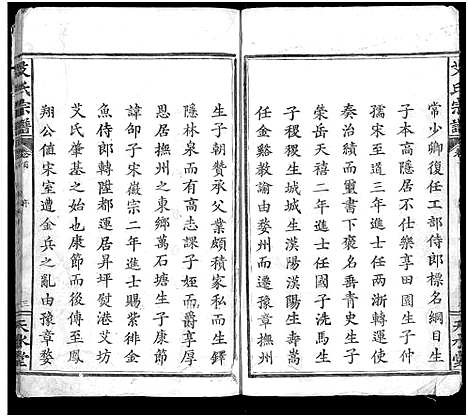 常少卿復任工部侍郎標名綱目生
子本高隱不仕樂享田園生子仔
孺宋至道三年進士任兩浙轉運使
奏治績而璽書下褒名壽康生子
榮岳天禧二年進士任國子洗馬生
子城生城城生漢陽漢陽生壽嵩
任金谿教諭由婺州而遷豫章撫州
生子朝贊承父業頗積家私而生鐸
隱林泉而有高志課子姪而爵享厚
恩居撫州之東鄉萬石塘生子慶
諱卲子宋徽宗二年進士賜紫緋金
魚侍郎轉陞都運居昇坪傳艾坊
艾氏肇基之始也康節而後傳至鳳
翔公値宋室遭金兵之亂由豫章婺
艾氏宗譜
卷首
三
天水堂